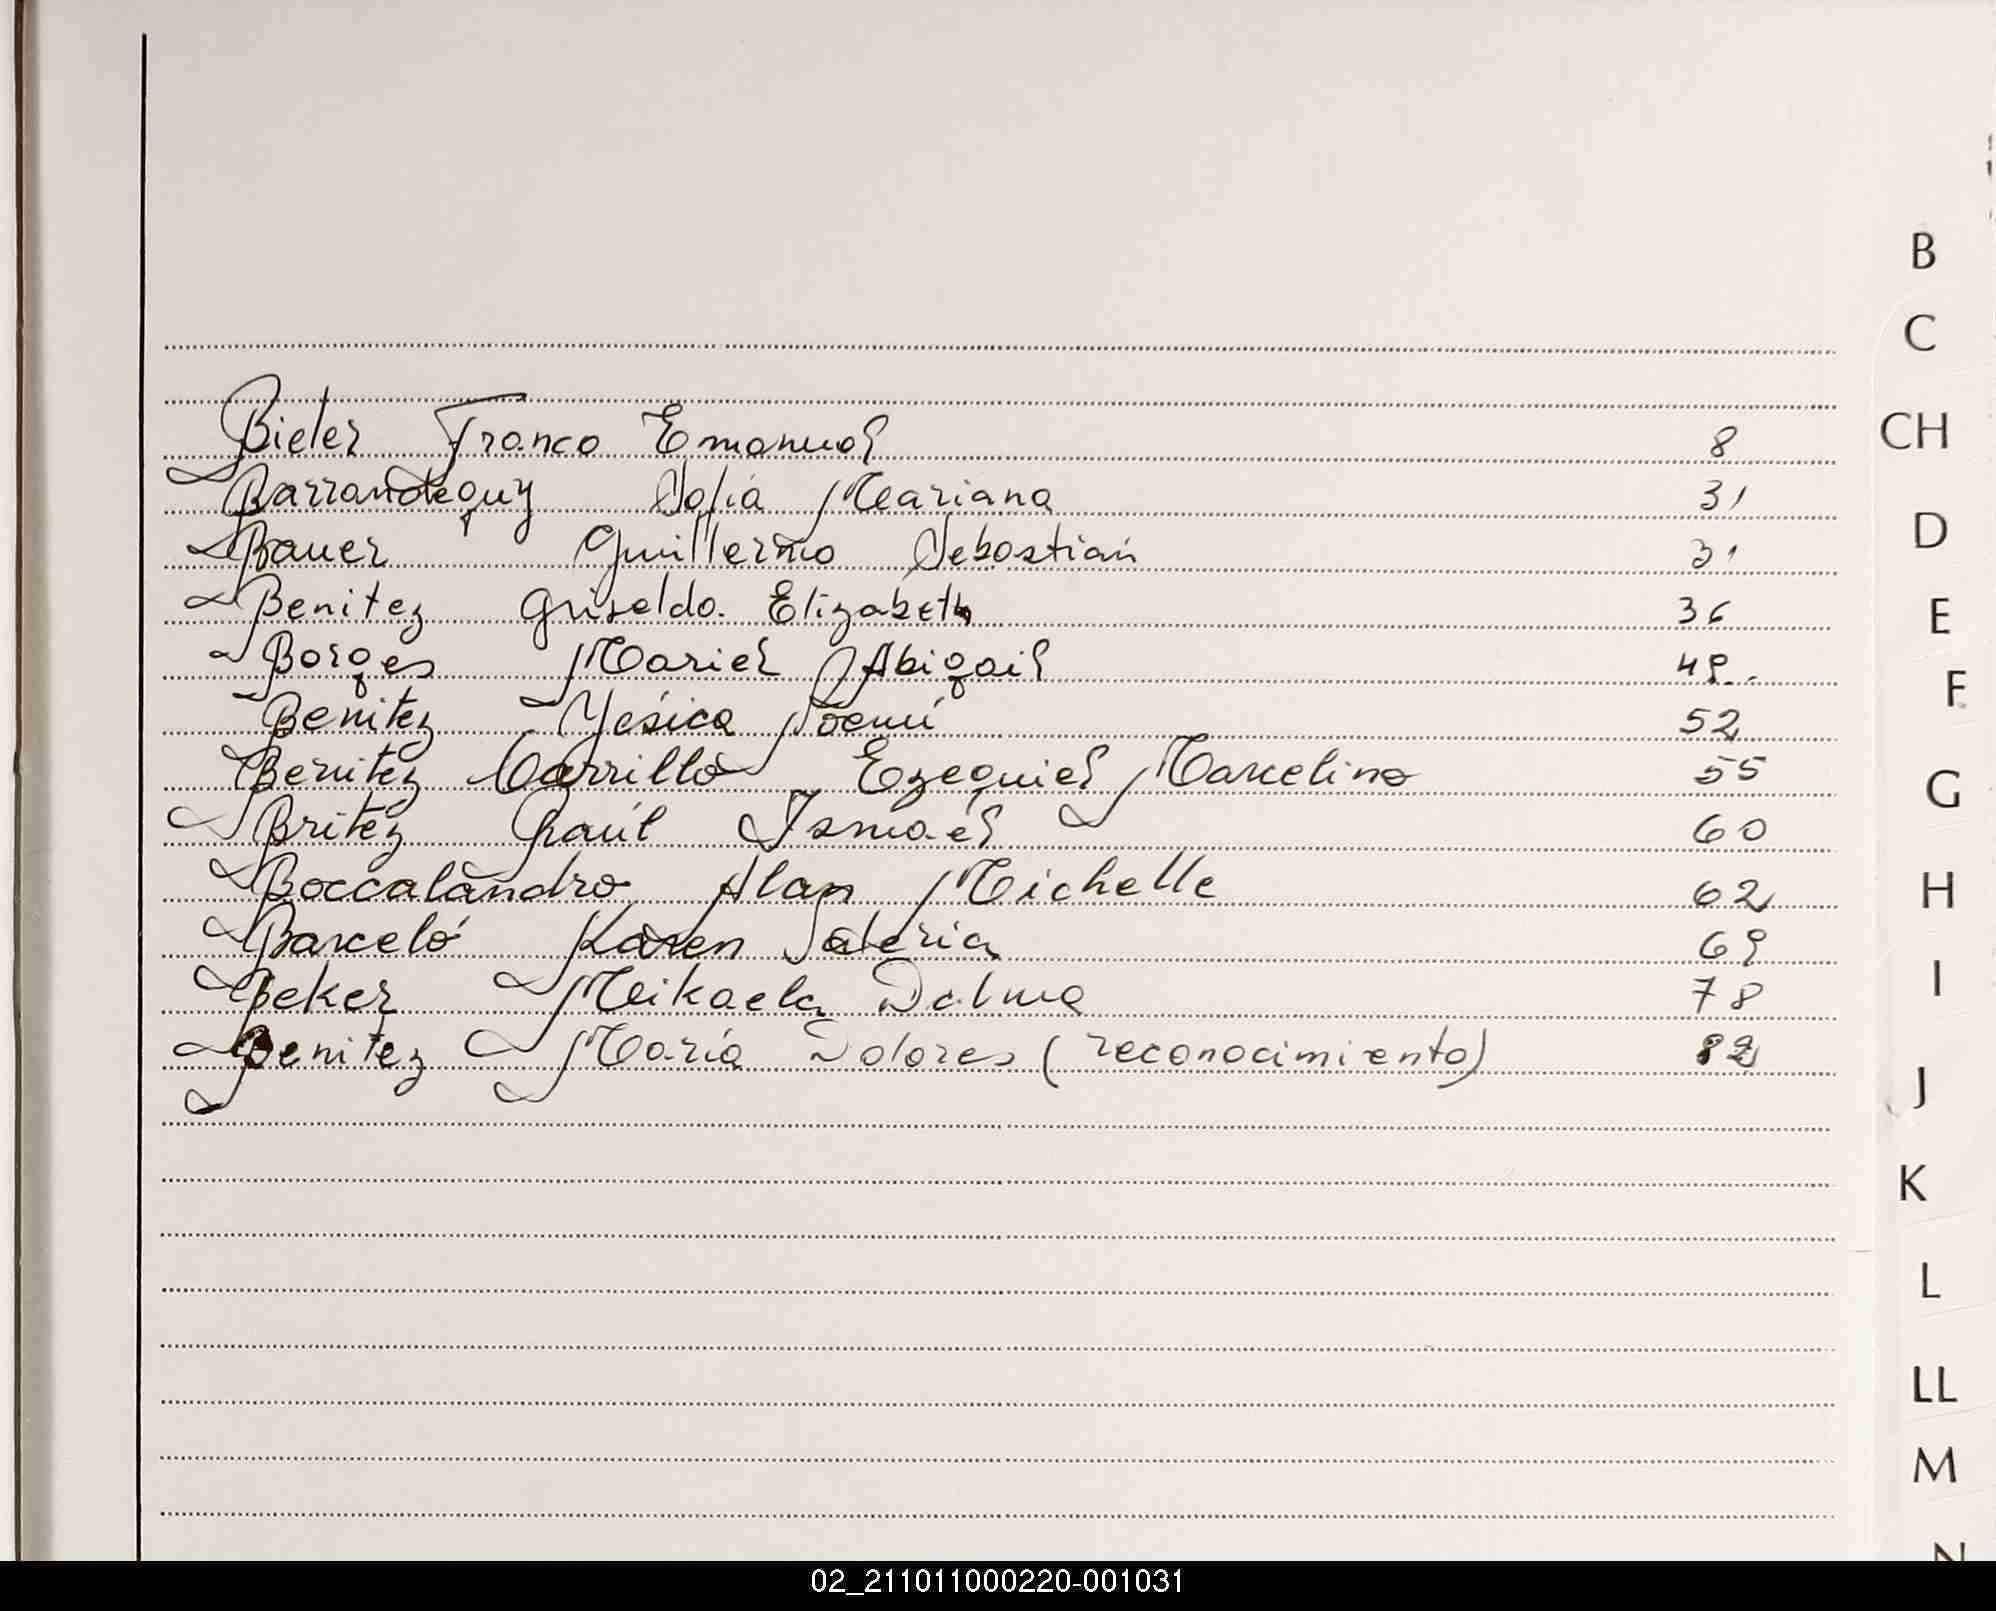 B
C
Bieler Franco Emanuel 8
CH
Barrandeguy Sofia Mariana 31
Bauer Guillermo Sebastián 31
D
Benitez Griselda Elizabeth 36
E
Borges Mariel Abigail 49
F
Benitez Yésica Noemí 52
Benitez Carrillo Ezequiel Marcelino 55
G
Britez Raúl Ismael 60
Boccalandro Alan Michelle 62
H
Barceló Karen Valeria 69
Beker Mikaela Dalma 78
I
Benitez María Dolores (reconocimiento) 82
J
K
L
LL
M
N
02_211011000220-001031